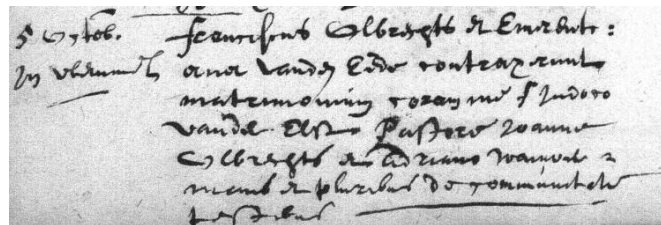 5 Octob. franciscus Olbrechts et Emerenti:
ana vanden Eede contraxerunt
matrimonium coram me f Judoco
vander Elst Pastore Joanne
Olbrechts et Adriano
et pluribus de communitate
testibus